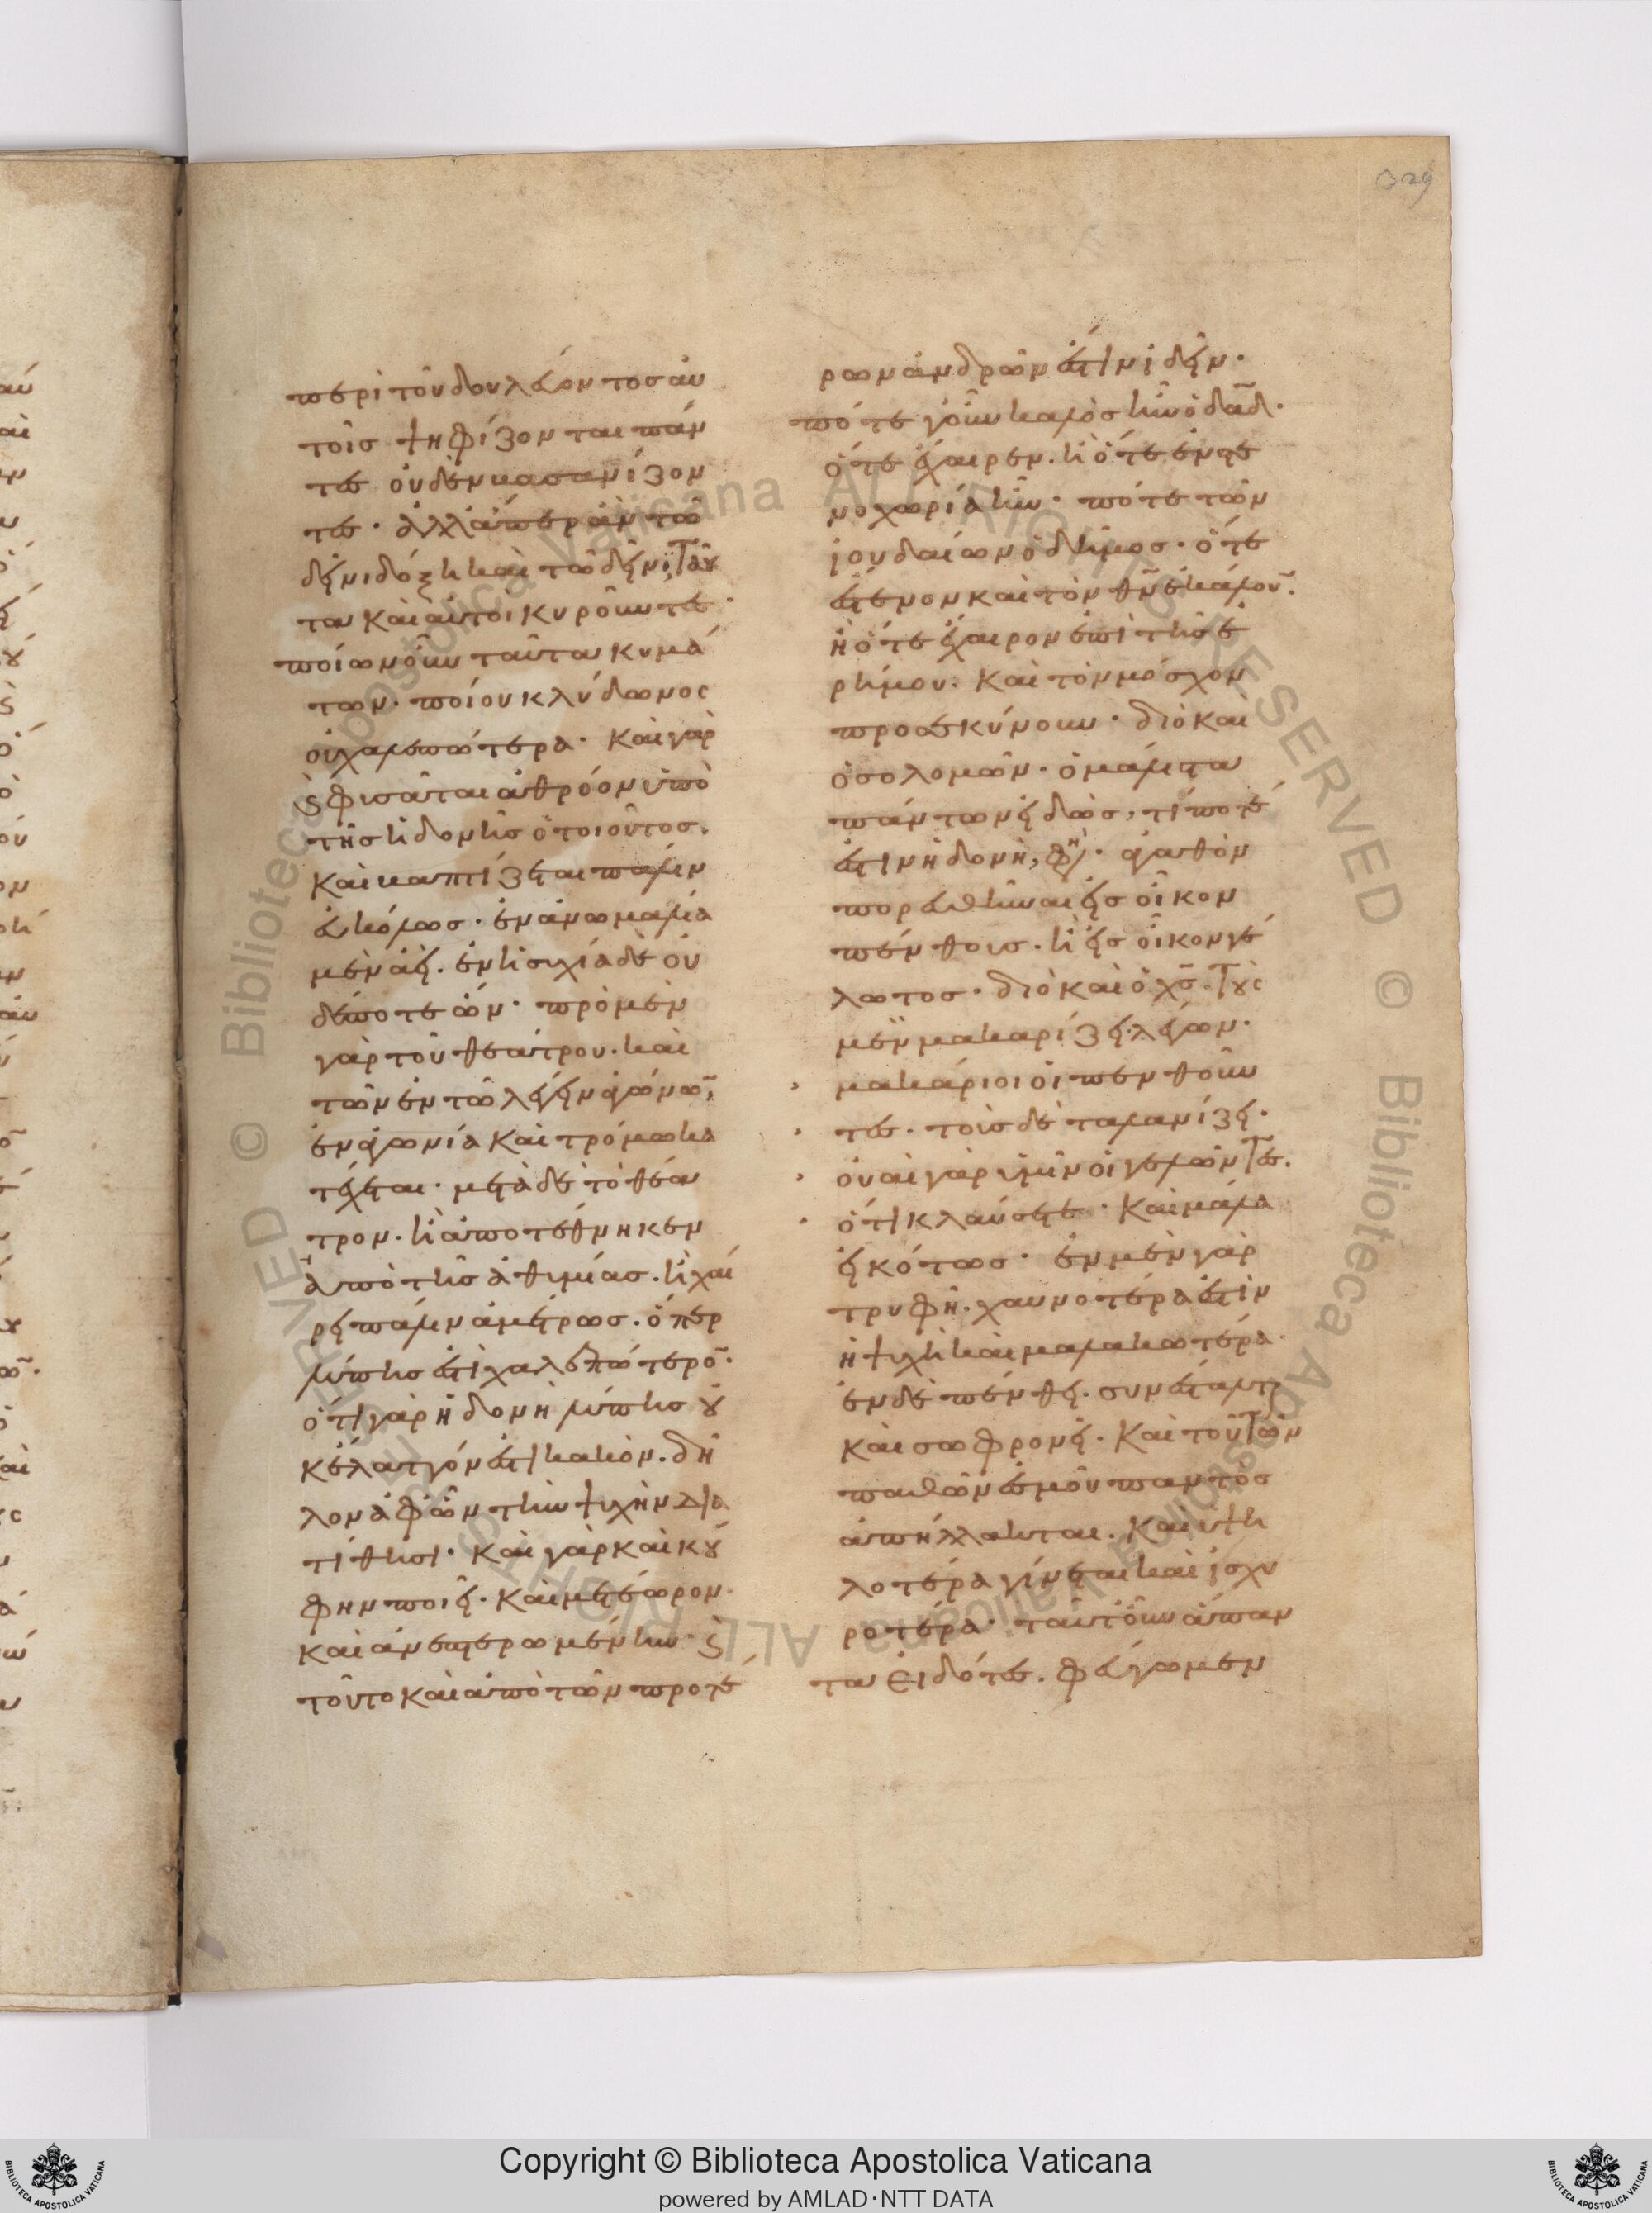 329
περὶ τοῦ δουλεύοντος αὐ
τοῖς ψηφίζονται πάν
τες οὐδὲν βασανίζον
τες· ἀλλ' ἅπερ ἂν τῶ
δεῖνι δόξη καὶ τῶ δεῖνι, ταῦ
τα καὶ αὐτοὶ κυροῦντες·
ποίων οὖν ταῦτα κυμά
των· ποίου κλύδωνος
οὐ χαλεπώτερα· καὶ γὰρ
ὑφίσταται ἀθρόον ὑπὸ
τῆς ἡδονῆς ὁ τοιοῦτος.
καὶ βαπτίζεται πάλιν
εὐκόλως· ἐν ἀνωμαλία
μὲν ἀεί. ἐν ἡσυχία δὲ οὐ
δέποτε ὤν· πρὸ μὲν
γὰρ τοῦ θεάτρου. καὶ
τῶν ἐν τῶ λέγειν ἀγώνων,
ἐν ἀγωνία καὶ τρόμω κα
τέχεται· μετὰ δὲ τὸ θέα
τρον. ἢ ἀποτέθνηκεν
ἀπὸ τῆς ἀθυμίας. ἢ χαί
ρει πάλιν ἀμέτρως. ὅπερ
λύπης ἐστὶ χαλεπώτερον·
ὅτι γὰρ ἡδονὴ λύπης οὐ
κ ἔλαττόν ἐστι κακόν. δῆ
λον ἀφ' ὧν τὴν ψυχὴν δια
τίθησι· καὶ γὰρ καὶ κού
φην ποιεῖ· καὶ μετέωρον·
καὶ ἀνεπτερωμένην· καὶ
τοῦτο καὶ ἀπὸ τῶν προτέ
ρων ἀνδρῶν ἐστιν ἰδεῖν·
πότε γοῦν καλὸς ἦν ὁ δαδ·
ὅτε ἔχαιρεν. ἢ ὅτε ἐν στε
νοχωρία ἦν· πότε τῶν
ἰουδαίων ὁ δῆμος· ὅτε
ἔστενον καὶ τὸν θν ἐκάλουν.
ἢ ὅτε ἔχαιρον ἐπὶ τῆς ἐ
ρήμου. καὶ τὸν μόσχον
προσεκύνουν· διὸ καὶ
ὁ σολομῶν· ὁ μάλιστα
πάντων εἰδὼς, τί ποτέ
ἐστιν ἡδονὴ, φη· ἀγαθὸν
πορευθῆναι εἰς οἶκον
πένθους. ἢ εἰς οἶκον γέ
λωτος· διὸ καὶ ὁ χς. τοὺς
μὲν μακαρίζει λέγων·
μακάριοι οἱ πενθοῦν
τες. τοὺς δὲ ταλανίζει·
οὐαὶ γὰρ ὑμῖν οἱ γελῶντες.
ὅτι κλαύσετε· καὶ μάλα
εἰκότως· ἐν μὲν γὰρ
τρυφῆ. χαυνοτέρα ἐστὶν
ἡ ψυχὴ καὶ μαλακωτέρα·
ἐν δὲ πένθει. συνέσταλται
καὶ σωφρονεῖ. καὶ τοῦ τῶν
παθῶν ἐσμοῦ παντὸς
ἀπήλλακται. καὶ ὑψη
λοτέρα γίνεται καὶ ἰσχυ
ροτέρα· ταῦτ' οὖν ἅπαν
τα εἰδότες. φεύγωμεν
Copyright © Biblioteca Apostolica Vaticana
powered by AMLAD·NTT DATA